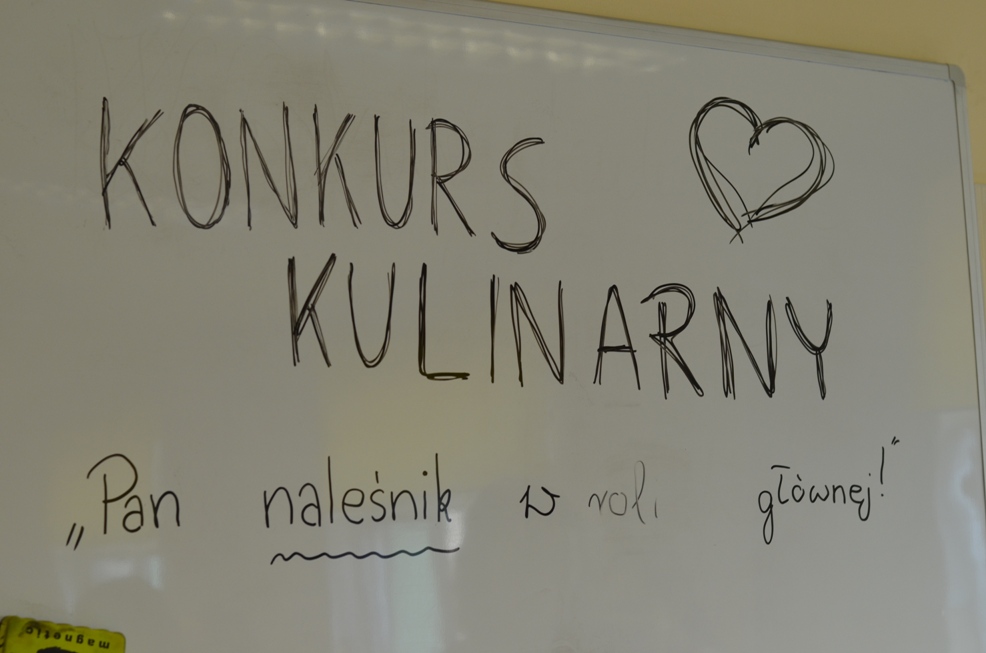 KONKURS
KULINARNY
„Pan naleśnik w roli głównej!"
magnetic